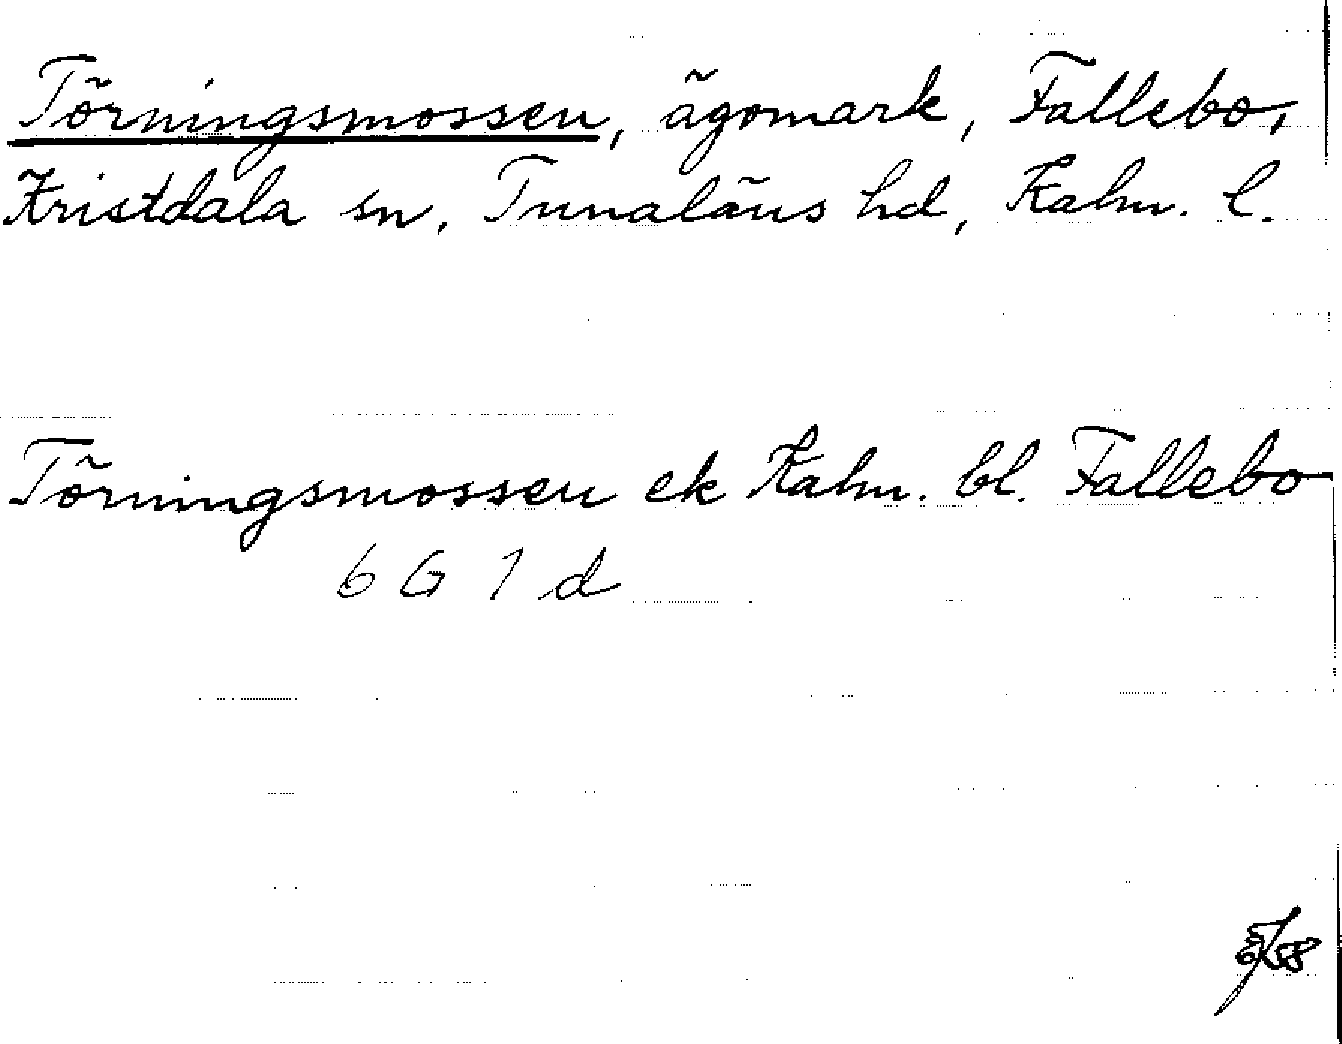 Törningsmossen, ägomark, Fallebo,
Kristdala sn, Tunaläns hd, Kalm. l.
Törningsmossen ek Kalm. bl. Fallebo
6 G 1 d